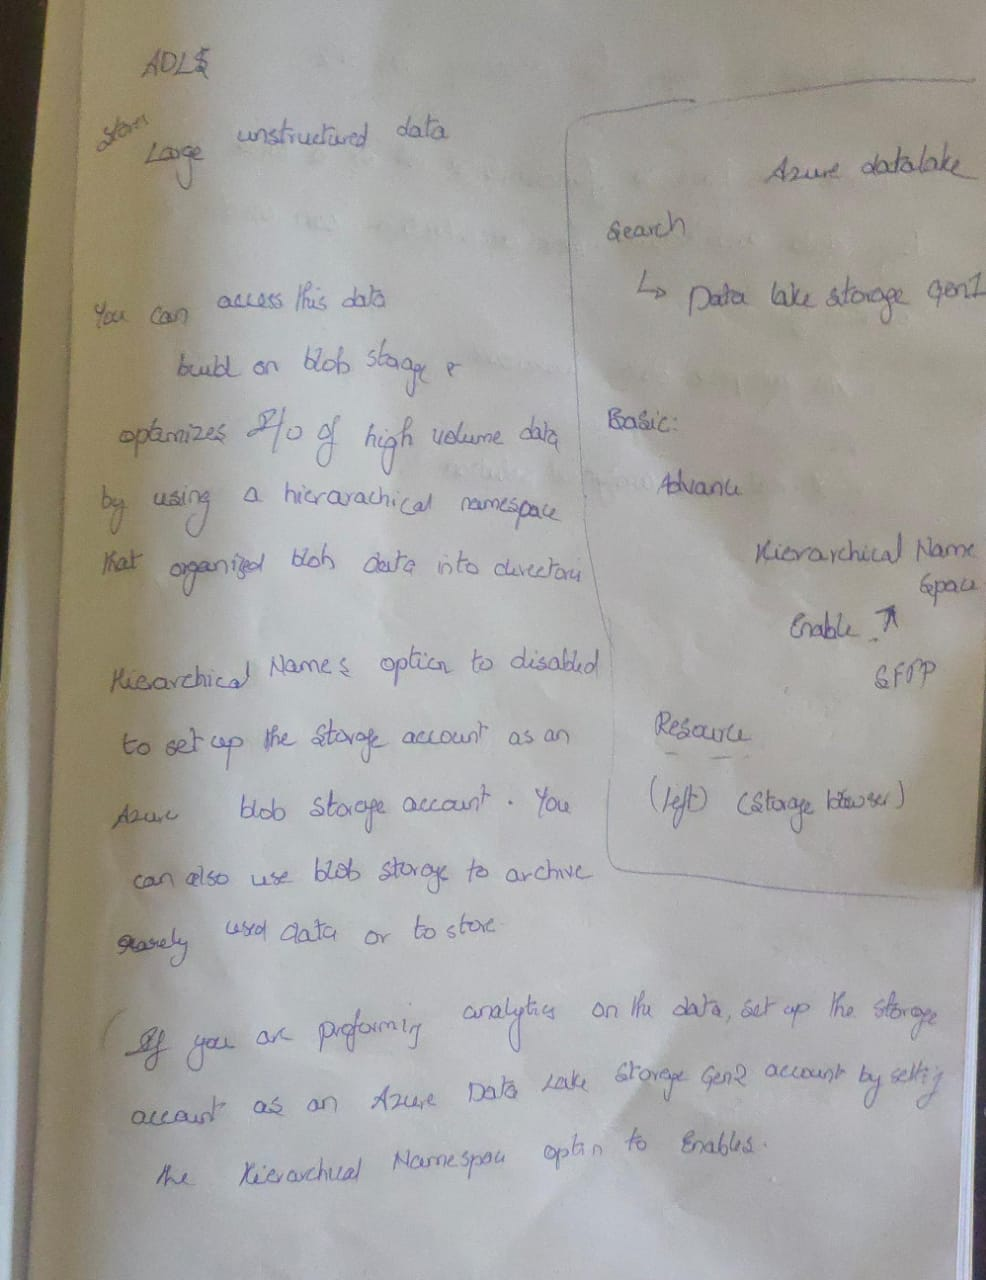 ADLS
Store
Large unstructured data
You can access this data
build on blob stoage &
optamizes I/O of high volume data
by using a hierarachical namespace
that organized blob data into directori
Hierarchical Names option to disabled
to set up the storage account as an
Azure blob storage account. You
can also use blob storage to archive
rarely used data or to store
If you are preforming analytics on the data, set up the storage
account as an Azure Data Lake Storage Gen2 account by setting
the Hierarchical Namespace option to Enables.
Azure datalake
Search
↳ Data lake storage gen2
Basic:
Advance
Hierarchical Name
Space
Enable ↗
SFTP
Resource
(left) (Storage browser)